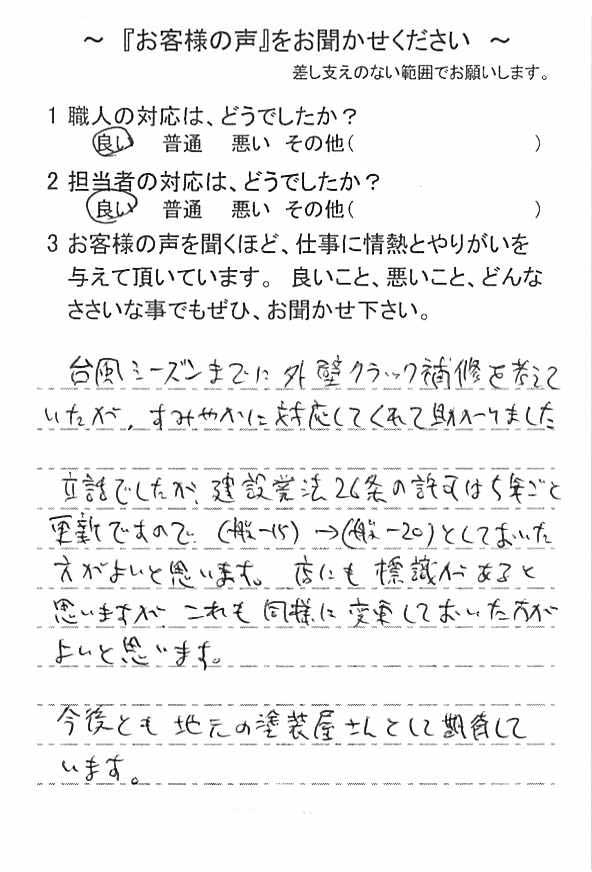 ～ 『お客様の声』をお聞かせください ～
差し支えのない範囲でお願いします。
1 職人の対応は、どうでしたか？
良い 普通 悪い その他( )
2 担当者の対応は、どうでしたか？
良い 普通 悪い その他( )
3 お客様の声を聞くほど、仕事に情熱とやりがいを
与えて頂いています。 良いこと、悪いこと、どんな
ささいな事でもぜひ、お聞かせ下さい。
台風シーズンまでに外壁クラック補修を考えて
いたが、すみやかに対応してくれて助かりました
立話でしたが、建設業法26条の許可は5年ごと
更新ですので、(般-15)→(般-20)としておいた
方がよいと思います。店にも標識があると
思いますが、これも同様に変更しておいた方が
よいと思います。
今後とも地元の塗装屋さんとして期待して
います。